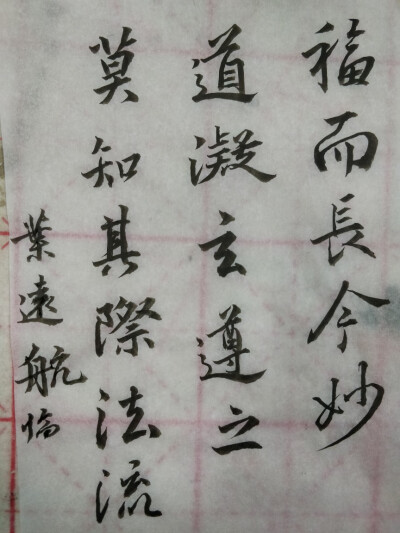 福而長今妙
道凝玄遵之
莫知其際法流
葉遠航臨